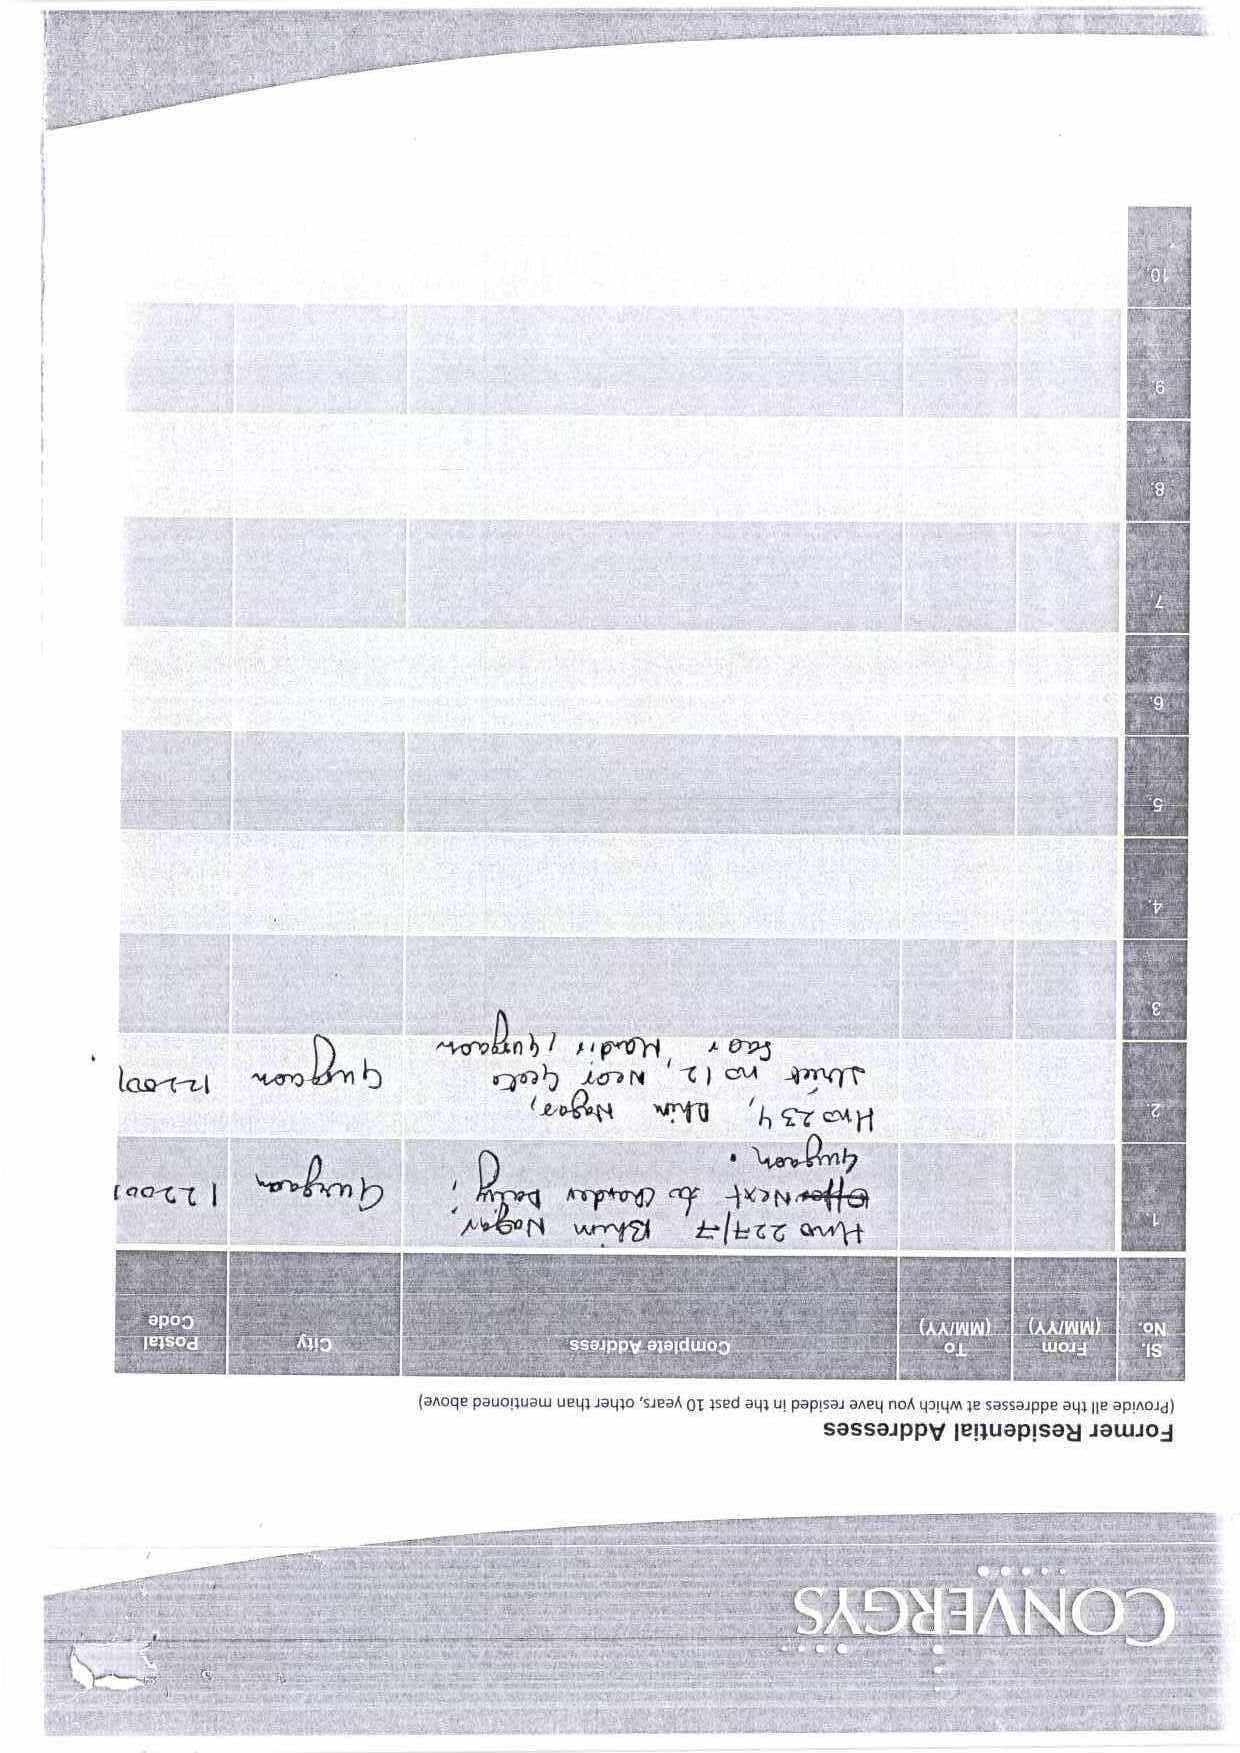 CONVERGYS
Former Residential Addresses
(Provide all the addresses at which you have resided in the past 10 years, other than mentioned above)
Sl. No. From (MM/YY) To (MM/YY) Complete Address City Postal Code
1. Hno 227/7 Bhim Nagar
Next to Chander Dairy, Gurgaon 122001
Gurgaon.
2. Hno 234, Bhim Nagar,
Street no 12, Near Geeta Gurgaon 122001
Mandir, Gurgaon
3
4.
5.
6.
7
8.
9
10.